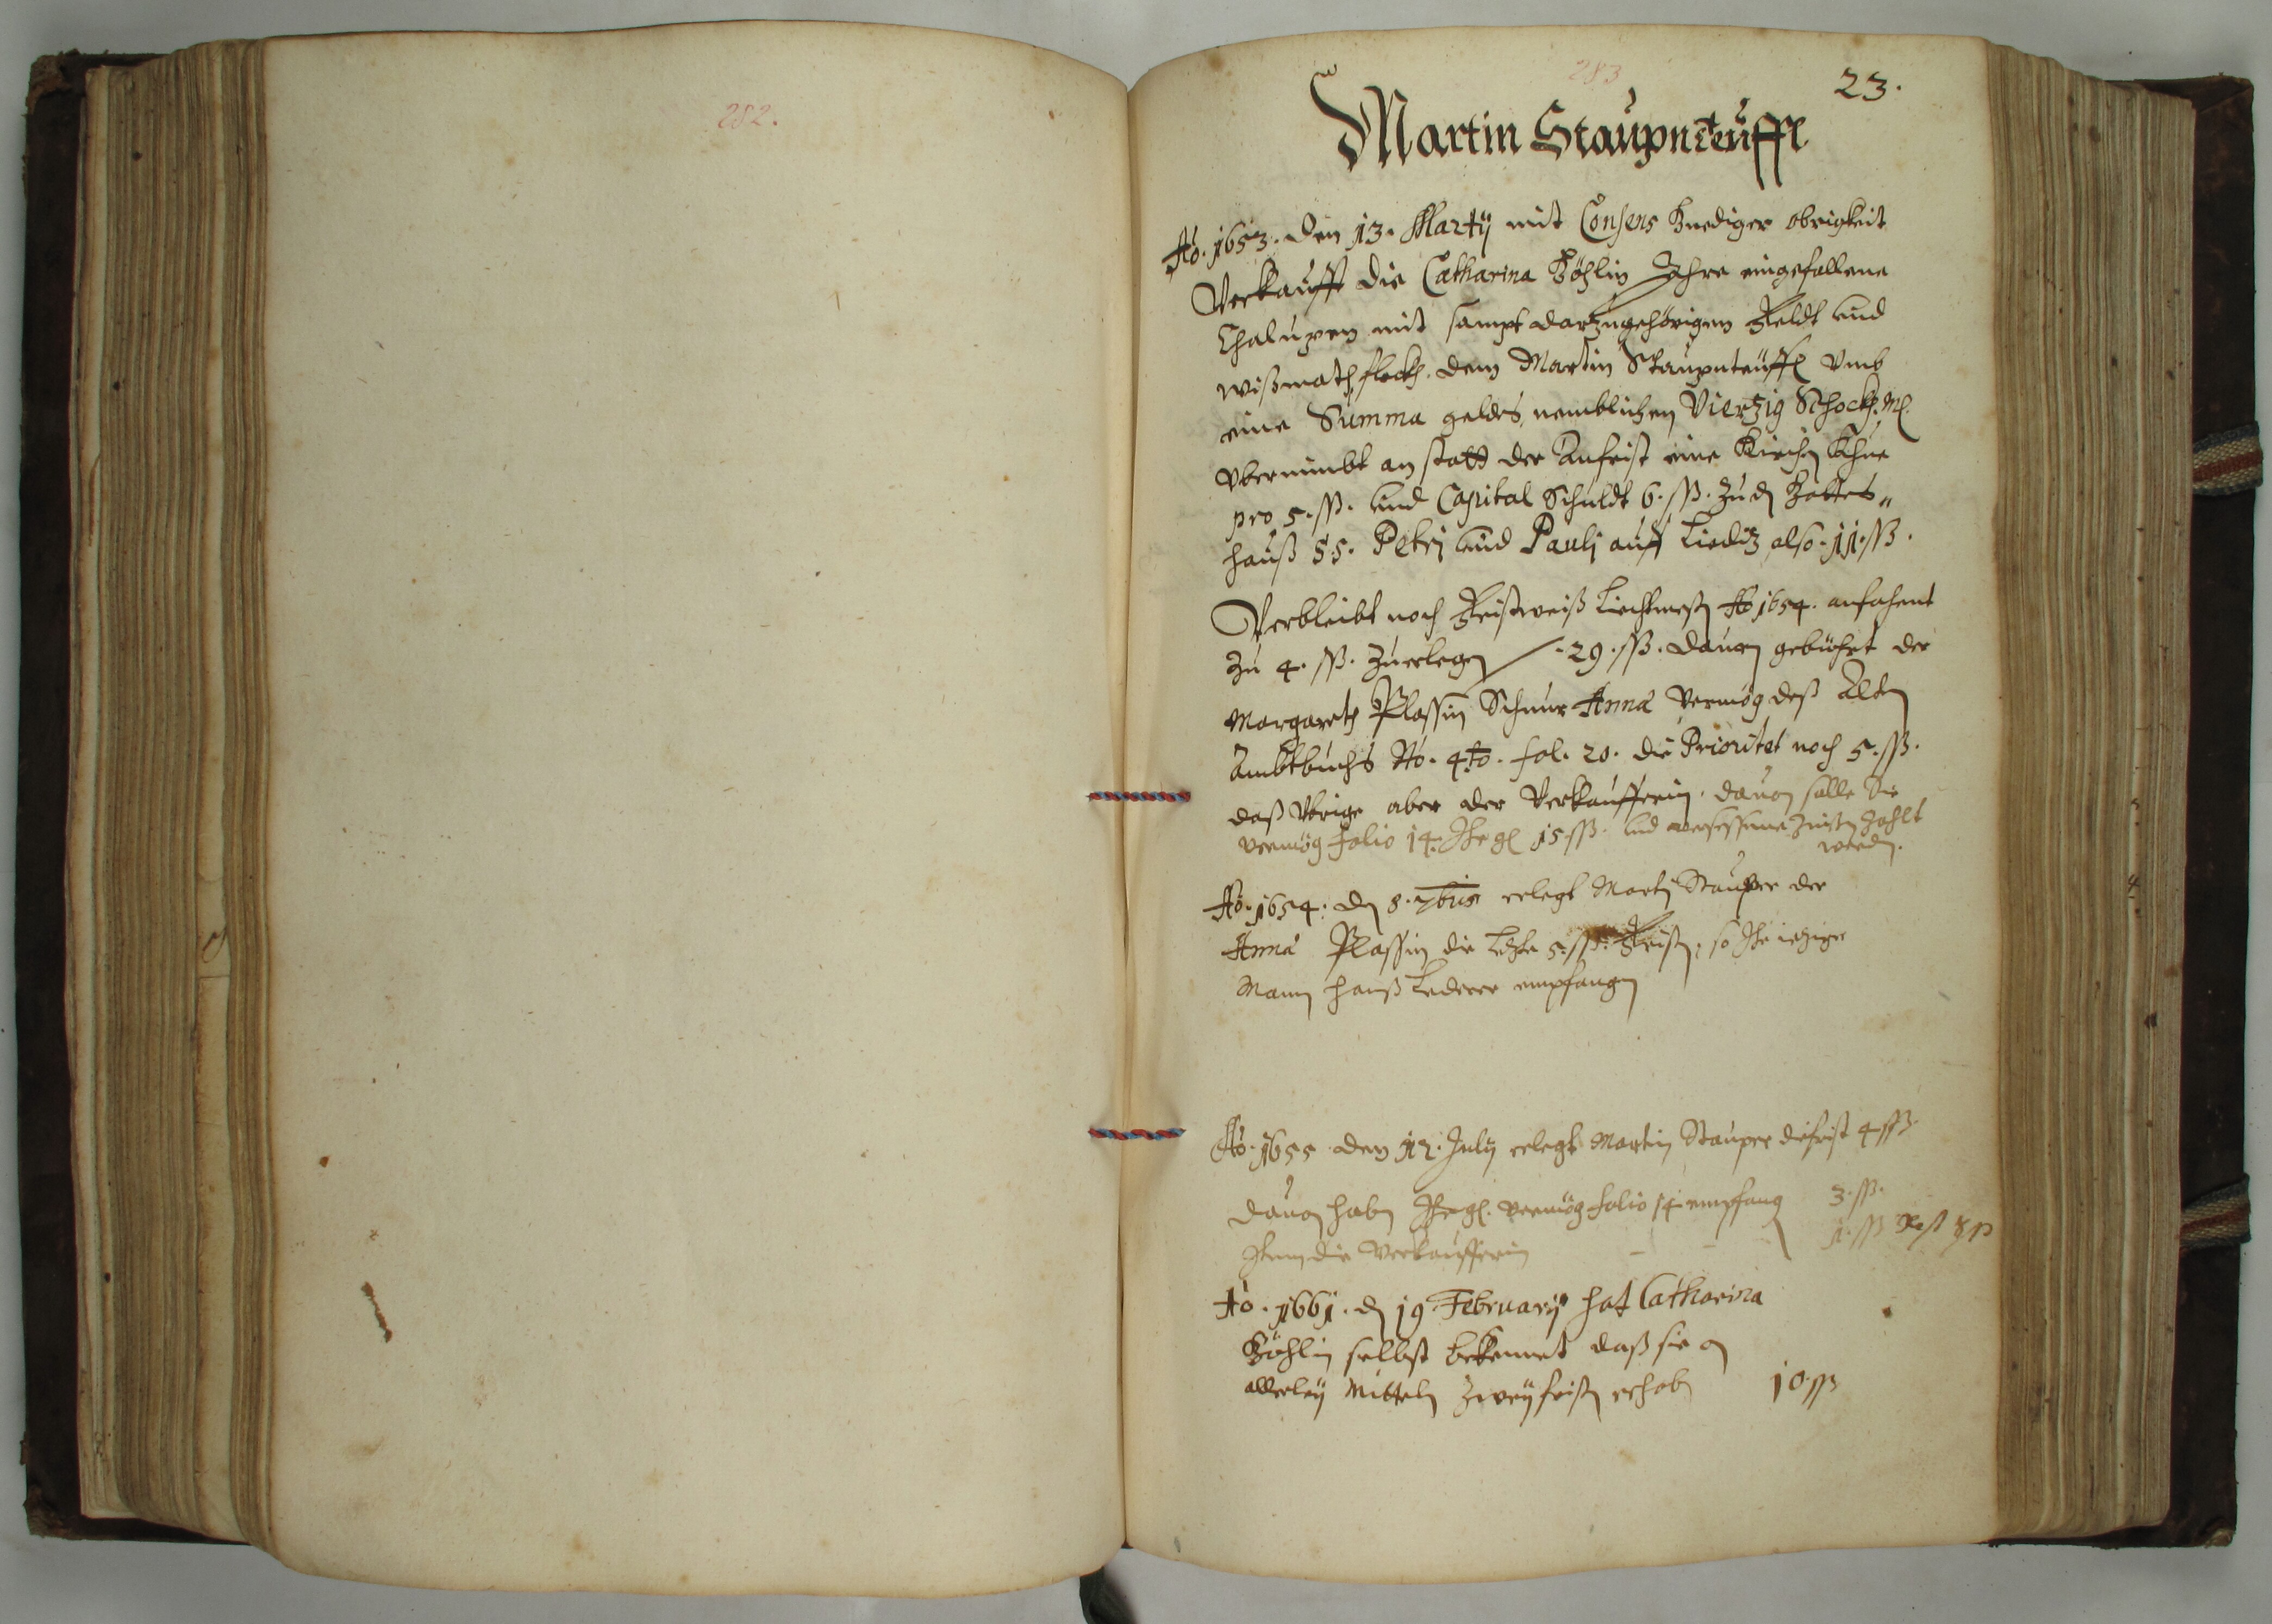 282.
283
23.
Martin Staupnteuffl
Ao. 1653. den 13. Marty mit Consens Gnediger obrigkeit
Verkaufft die Catharina Böhlin Ihre eingefallene
Chalupen mit sampt darzugehörigen Feldt und
wißmath fleckh. dem Martin Staupnteuffl umb
eine Summa geldes, nemblichen Vierzig Schockh. M.
vbernimbt an statt der Anfrist eine Kirchen Khue
pro 5. ß. und Capital Schuldt 6. ß. zu dem Gottes„
hauß SS. Petri und Pauli auff also 11. ß.
Verbleibt noch Fristweiß Liechtmeßn Ao 1654. anfahent
zu 4. ß. zuerlegen 29. ß. dauon gebührt der
Margareth Plassin Schnur Anna vermög deß Alten
Ambtbuchs No. 4to. fol. 20. die Prioritet noch 5. ß.
daß Vbrige aber der Verkaufferin. dauon solle Sie
vermög folio 14. 15 ß. und versessene Zinßen Zahlt
werden.
Ao. 1654. den 8. 7bris erlegt Martin Stauper der
Anna Plassin die letzte 5. ß. Fristen, so Ihr ieziger
Mann Hanß Lederer empfangen
Ao. 1655 den 12. July erlegt Martin Stauper die frist 4 ß.
Dauon haben vermög folio 14 empfang 3. ß.
Item die Verkaufferin - - - 1. ß Rest
Ao. 1661. den 19. February hat Catharina
Böhlin selbst bekennet daß sie in
allerley Mitteln zwey fristen erhoben 10 ß